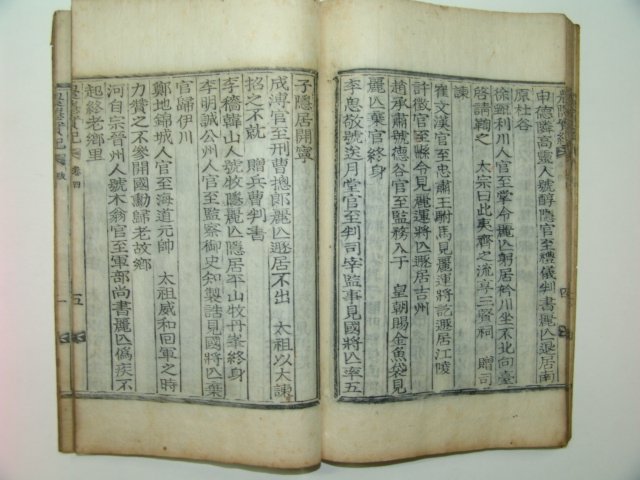 申德隣高靈人號醇隱官至禮儀判書麗亡退居南
原杜谷
徐甄利川人官至掌令麗亡躬居衿川坐不北向臺
啓請鞫之 太宗曰此夷齊之流享三賢祠 贈司
諫
崔文漢官至忠肅王駙馬見麗運將訖遯居江陵
許徵官至縣令見麗運將亡遯居吉州
趙承肅號德谷官至監務入于 皇朝賜金魚袋見
麗亡棄官終身
李思敬號送月堂官至判司宰監事見國將亡率五
子隱居開寧
成溥官至刑曹摠郎麗亡遯居不出 太祖以大諫
招之不就 贈兵曹判書
李穡韓山人號牧隱麗亡隱居平山牧丹峯終身
李明誠公州人官至監察御史知製誥見國將亡棄
官歸伊川
鄭地錦城人官至海道元帥 太祖威和回軍之時
力贊之不參開國勳歸老故鄉
河自宗晉州人號木翁官至軍部尚書麗亡僞疾不
起終老鄉里
實記 卷四 五